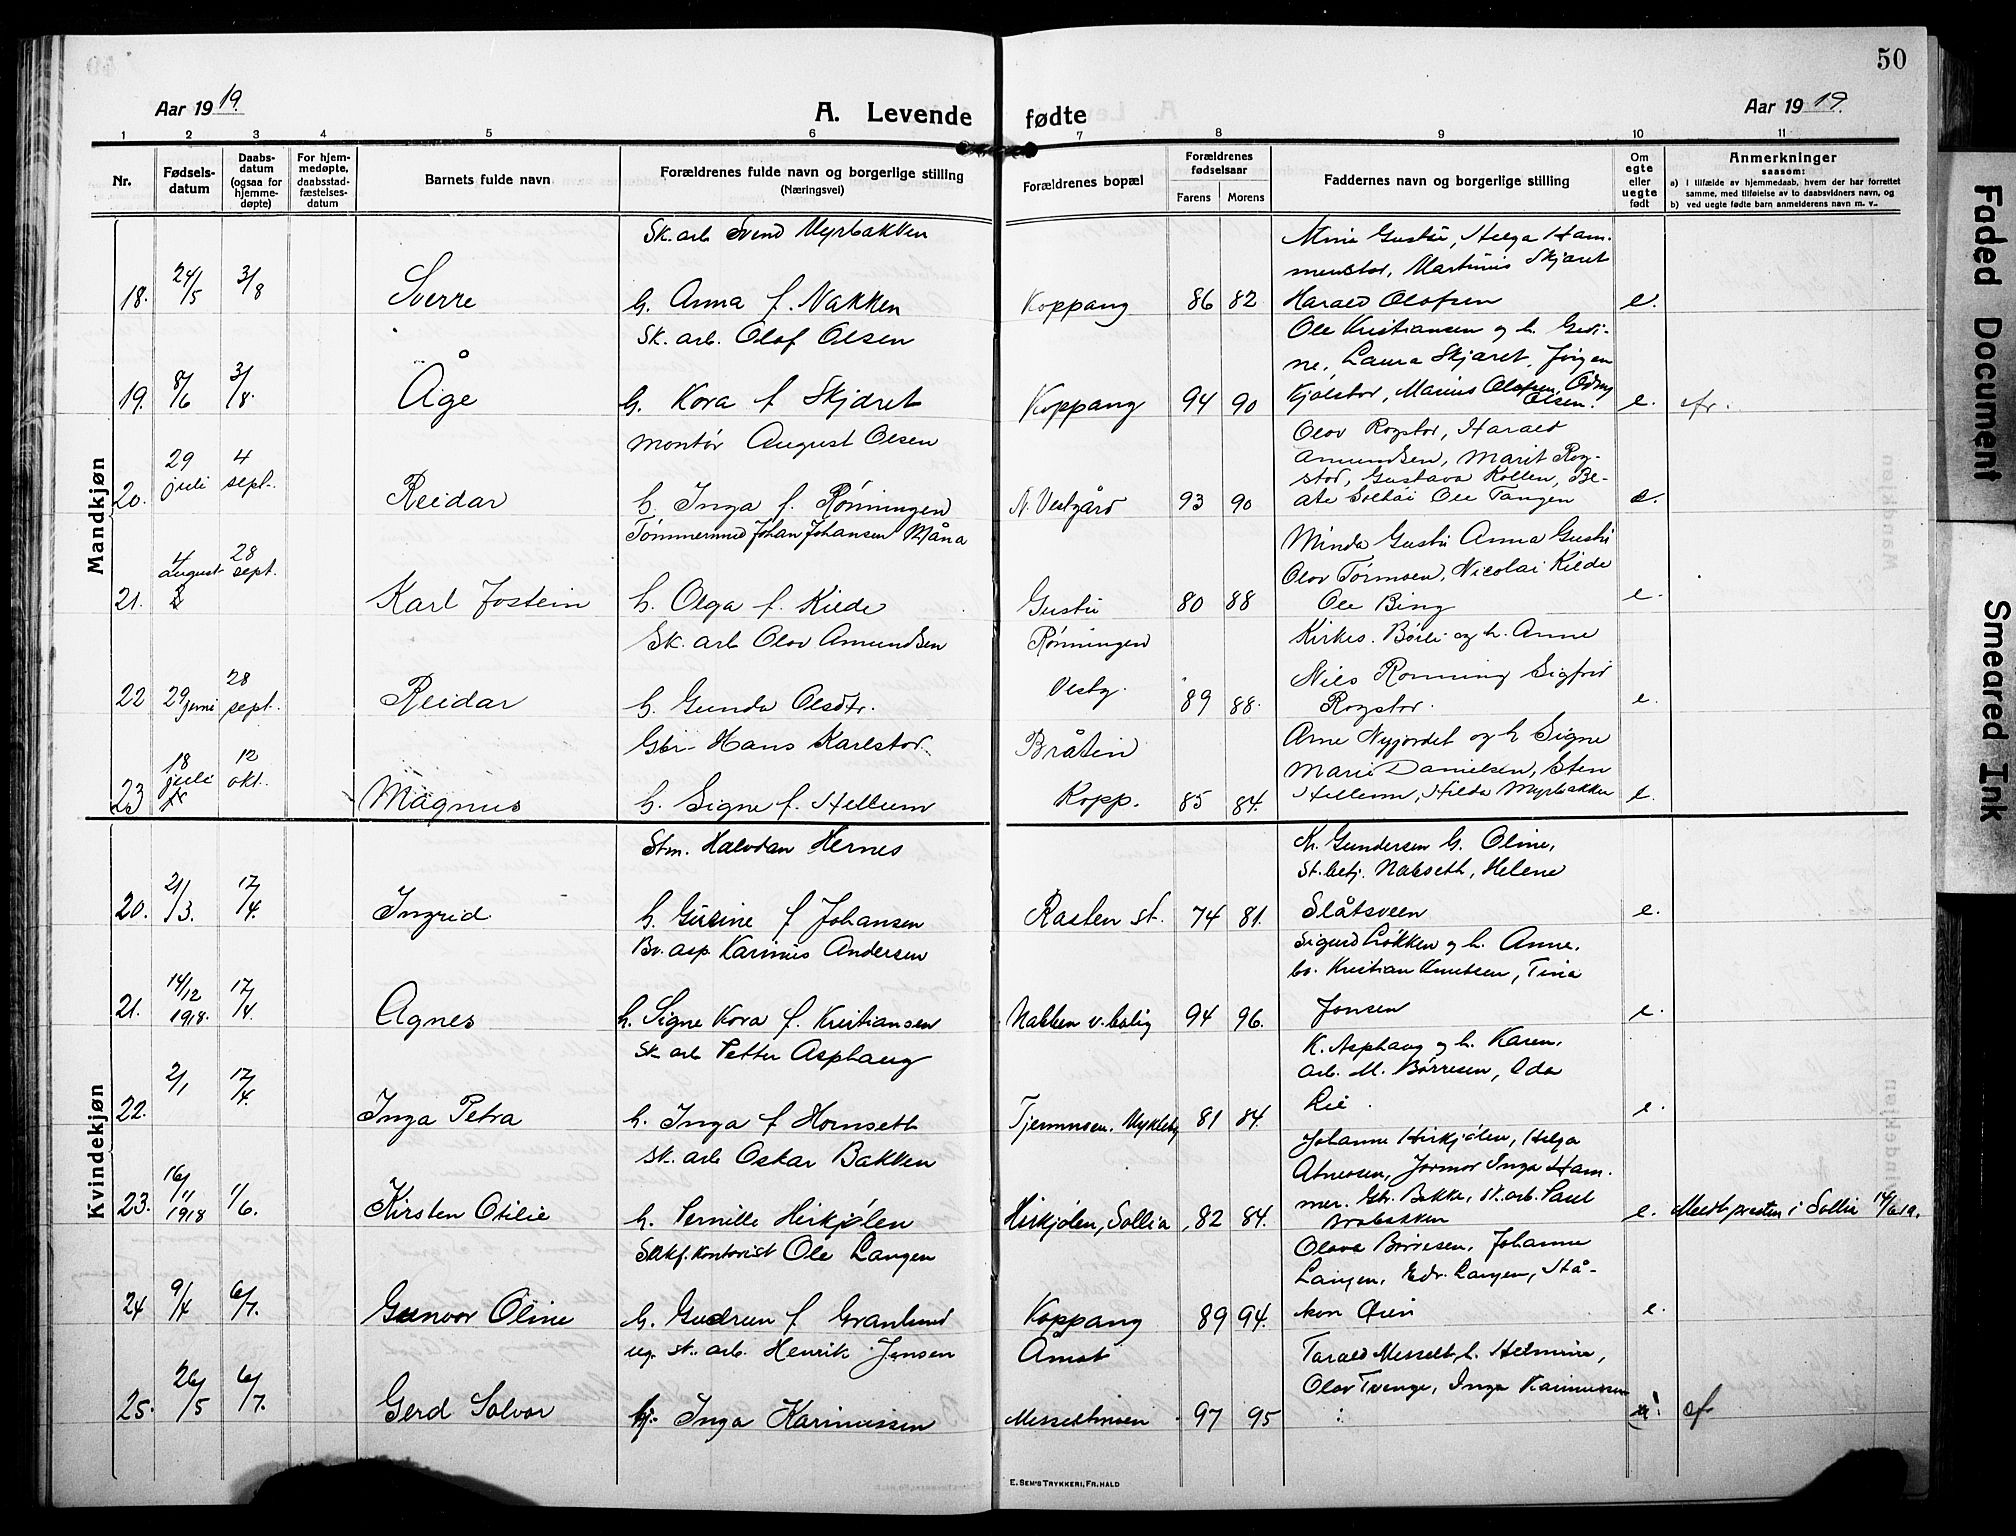 50
Aar 1919.
A. Levende fødte
Aar 1919.
1 2 3 4 5 6 7 8 9 10 11
Nr.
Fødsels-
datum
Daabs-
datum
(ogsaa for
hjemme-
døpte)
For hjem-
medøpte,
daabsstad-
fæstelses-
datum
Barnets fulde navn
Forældrenes fulde navn og borgerlige stilling
(Næringsvei)
Forældrenes bopæl
Forældrenes
fødselsaar
Farens Morens
Faddernes navn og borgerlige stilling
Om
egte
eller
uegte
født
Anmerkninger
saasom:
a) i tilfælde av hjemmedaab, hvem der har forrettet
samme, med tilføielse av to daabsvidners navn, og
b) ved uegte fødte barn anmelderens navn m. v.
Mandkjøn
Sk. arb Svend Myrbakken
Mina Gustu, Helga Ham-
menstor, Martinus Skjæret
18. 24/5 3/8 Sverre h. Anna f. Nakken Koppang 86 82 Harald Olofsen e.
Sk. arb. Olaf Olsen
Ole Kristiansen og h. Gusti-
ne, Laura Skjæret, Jørgen
19. 8/6 3/8. Åge h. Kora f Skjæret Koppang 94 90 Kjølstor, Marius Olofsen, Odny
Olsen. e.
Montør August Olsen
Olov Rogstor, Harald
Amundsen, Marit Rog-
stor, Gustava Kollen, Be-
20. 29 juli 4 sept. Reidar h. Inga f. Rønningen N. Vestgård 93 90 ate Ole Tangen e.
Tømmermnd Johan Johansen Måna
Minda Gustu Anna Gustu
Olov Tørmoen, Nicolai Kilde
21. 4 august 28 sept. Karl Jostein h. Olga f. Kilde Gustu 80 88 Ole Bing e.
Sk. arb Olov Amundsen Rønningen Kirkes. Børli og h. Anne
Nils Rønning Sigfrid
22 29 juni 28 sept. Reidar h. Gunda Olsdtr. Vestg. 89 88. Rogstor. e.
Gbr- Hans Karlstor. Bråten Arne Nyjordet og h Signe
Marie Danielsen, Sten
23 18 juli 12 okt. Magnus h. Signe f. Hellum Kopp. 85 84. Hellum, Hilda Myrbakken e.
Kvindekjøn
Stm. Halvdan Hernes
Kr. Gundersen h. Oline,
St. betj. Nabseth, Helene
20. 21/3. 17/4. Ingrid h. Gusine f Johansen Rasten st. 74 81. Slåtsveen e.
Bv. asp. Karinus Andersen
Sigurd Løkken og h. Anne,
bv. Kristian Knutsen, Tina
21. 14/12 1918. 17/4. Agnes h. Signe Kora f. Kristiansen Nabben v. bolig 94 96. Jonsen e.
Sk. arb Petter Asphaug
K. Asphaug og h. Karen,
arb. M. Børresen, Oda
22. 2/1 17/4. Inga Petra h. Inga f Hornseth Tjernmoen. Mykleby 81 84. Lie. e.
Sk. arb Oskar Bakken
Johanne Hirkjølen, Helga
Atneosen, Jormor Inga Ham-
mer. Gbr. Bekke, sk. arb. Paul
23. 16/11 1918 1/6. Kirsten Otilie h. Pernille Hirkjølen Hirkjølen, Sollia 82 84. Brobakken e. Meldt presten i Sollia 14/6 19.
Selskf. kontorist Ole Langen
Olava Børresen, Johanne
Langen, Edv. Langen, Hå-
24 9/4 6/7. Gunvor Oline h. Gudrun f Granlund Koppang 89 94. kon Øien e.
ug. sk. arb. Henrik Jensen Åmot Tarald Messelt, h. Helmine,
Olov Tvenge, Inga Karinussen
25. 26/5 6/7. Gerd Solvor Inga Karinussen Messeltmoen 97 95
E. SEM'S TRYKKERI, FR. HALD
Faded Document
Smeared Ink